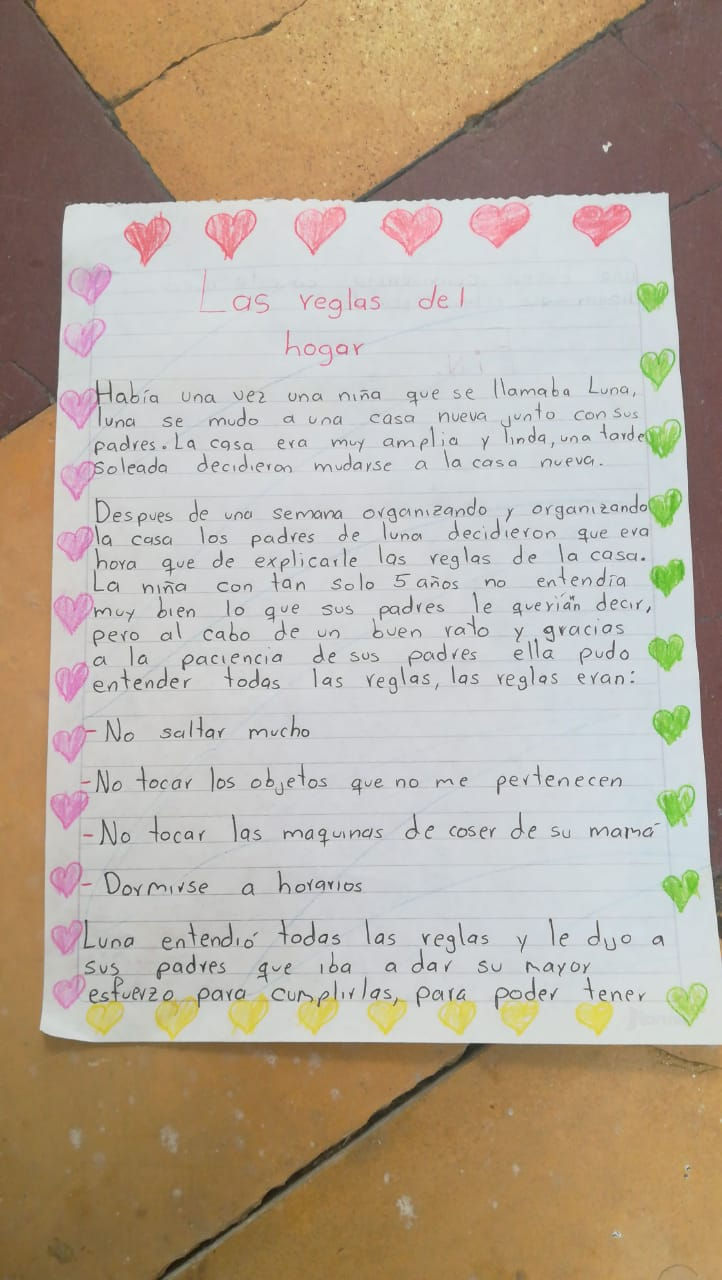 Las reglas del
hogar
Había una vez una niña que se llamaba Luna,
luna se mudo a una casa nueva junto con sus
padres. La casa era muy amplia y linda, una tarde
soleada decidieron mudarse a la casa nueva.
Despues de una semana organizando y organizando
la casa los padres de luna decidieron que era
hora que de explicarle las reglas de la casa.
La niña con tan solo 5 años no entendía
muy bien lo que sus padres le querían decir,
pero al cabo de un buen rato y gracias
a la paciencia de sus padres ella pudo
entender todas las reglas, las reglas eran:
- No saltar mucho
- No tocar los objetos que no me pertenecen
- No tocar las maquinas de coser de su mamá
- Dormirse a horarios
Luna entendió todas las reglas y le dijo a
sus padres que iba a dar su mayor
esfuerzo para cumplirlas, para poder tener